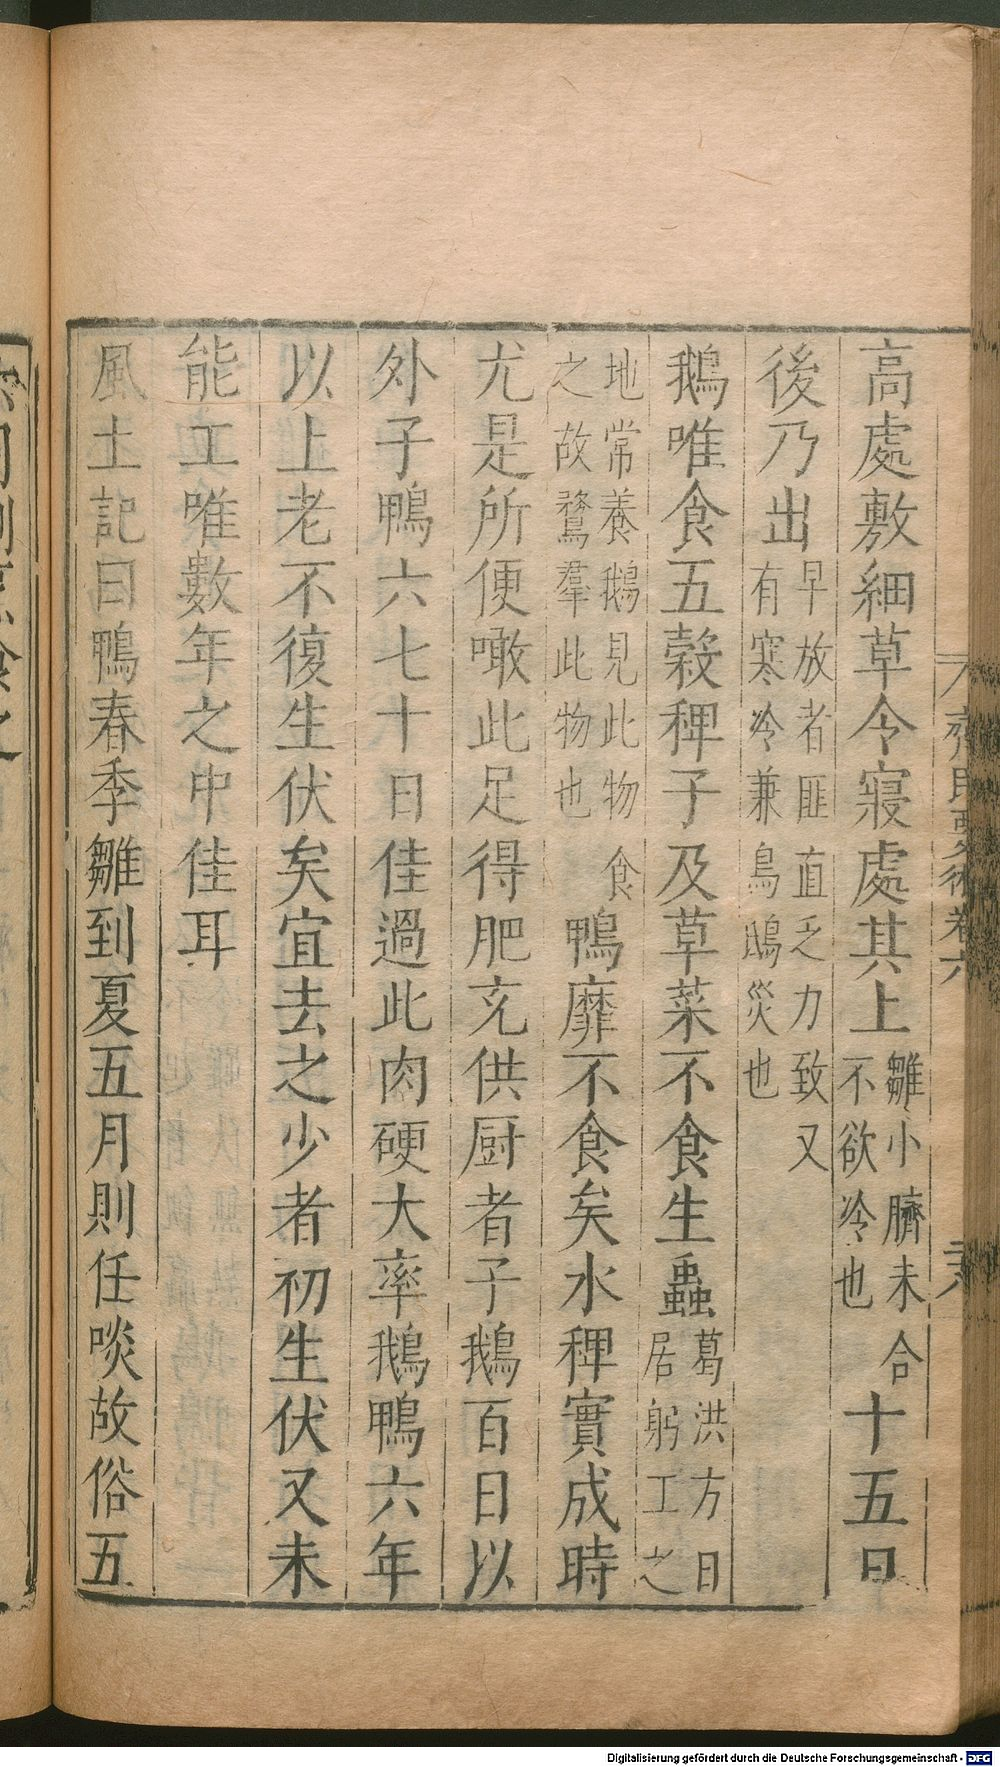 齊民要術卷六
高處敷細草令寢處其上雛小臍未合不欲冷也十五日
後乃出早放者匪直乏力致又有寒冷兼鳥鴟災也
鵝唯食五穀稗子及草菜不食生蟲葛洪方曰居躬工之
地常養鵝見此物食之故鶩羣此物也鴨靡不食矣水稗實成時
尤是所便噉此足得肥充供厨者子鵝百日以
外子鴨六七十日佳過此肉硬大率鵝鴨六年
以上老不復生伏矣宜去之少者初生伏又未
能工唯數年之中佳耳
風土記曰鴨春季雛到夏五月則任啖故俗五
Digitalisierung gefördert durch die Deutsche Forschungsgemeinschaft - DFG